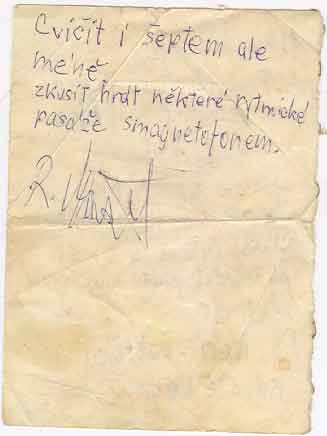 Cvičit i šeptem ale
méně
zkusit hrát některé rytmické
pasáže smagnetofonem.
R.